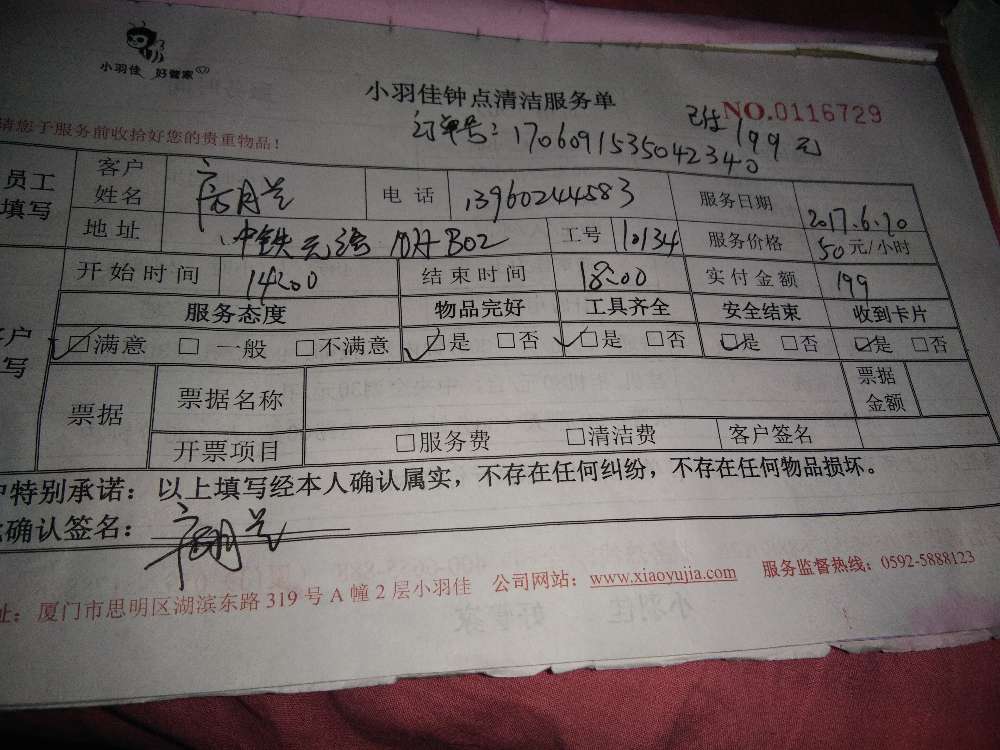 小羽佳 好管家
小羽佳钟点清洁服务单
NO.0116729
订单号: 1706091535042340
已付199元
请您于服务前收拾好您的贵重物品!
员工填写 客户姓名 月兰 电话 13960244583 服务日期 2017.6.20
地址 中铁元湾 B02 工号 10134 服务价格 50元/小时
开始时间 14:00 结束时间 18:00 实付金额 199
服务态度 物品完好 工具齐全 安全结束 收到卡片
☑满意 □一般 □不满意 ☑是 □否 ☑是 □否 ☑是 □否 ☑是 □否
票据 票据名称 票据金额
开票项目 □服务费 □清洁费 客户签名
特别承诺:以上填写经本人确认属实,不存在任何纠纷,不存在任何物品损坏。
确认签名: 月兰
址:厦门市思明区湖滨东路319号A幢2层小羽佳 公司网站:www.xiaoyujia.com 服务监督热线:0592-5888123